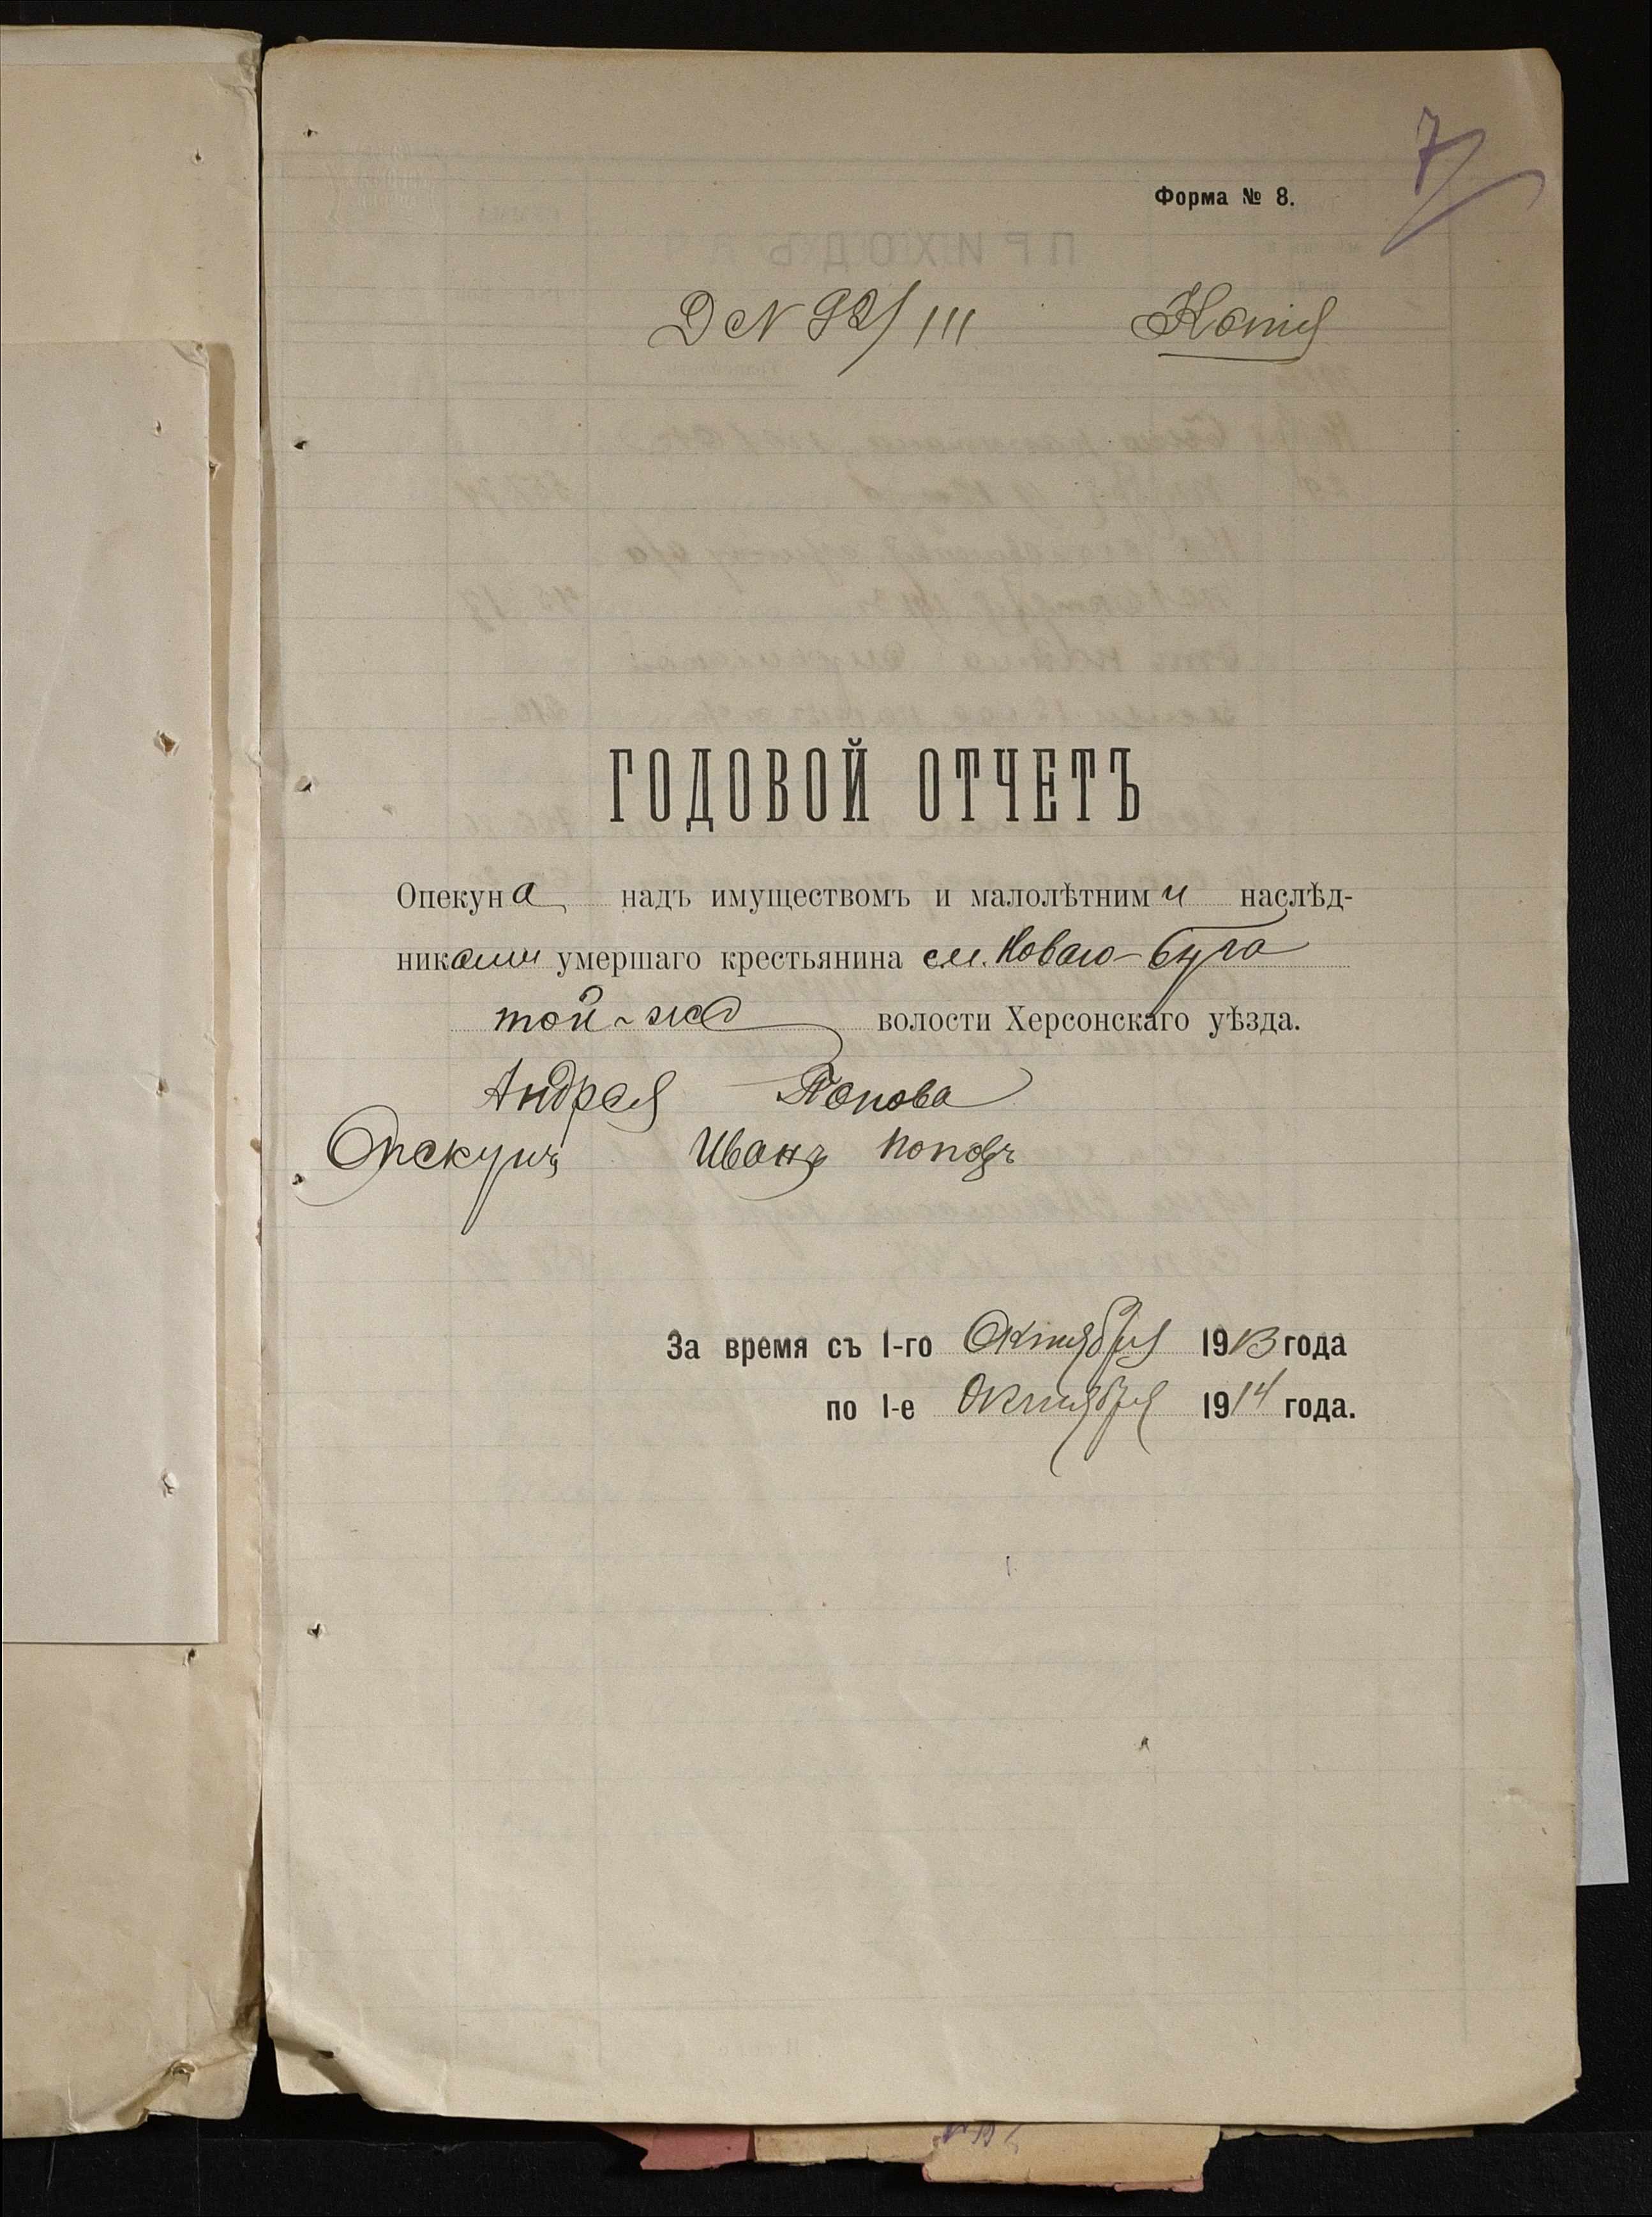 7
Форма № 8.
Д N 92/III Копія
ГОДОВОЙ ОТЧЕТЪ
Опекуна надъ имуществомъ и малолѣтними наслѣд-
никами умершаго крестьянина см. Новаго-Буга
той-же волости Херсонскаго уѣзда.
Андрея Попова
Опекунъ Иванъ Поповъ
За время съ 1-го Октября 1913 года
по 1-е Октября 1914 года.